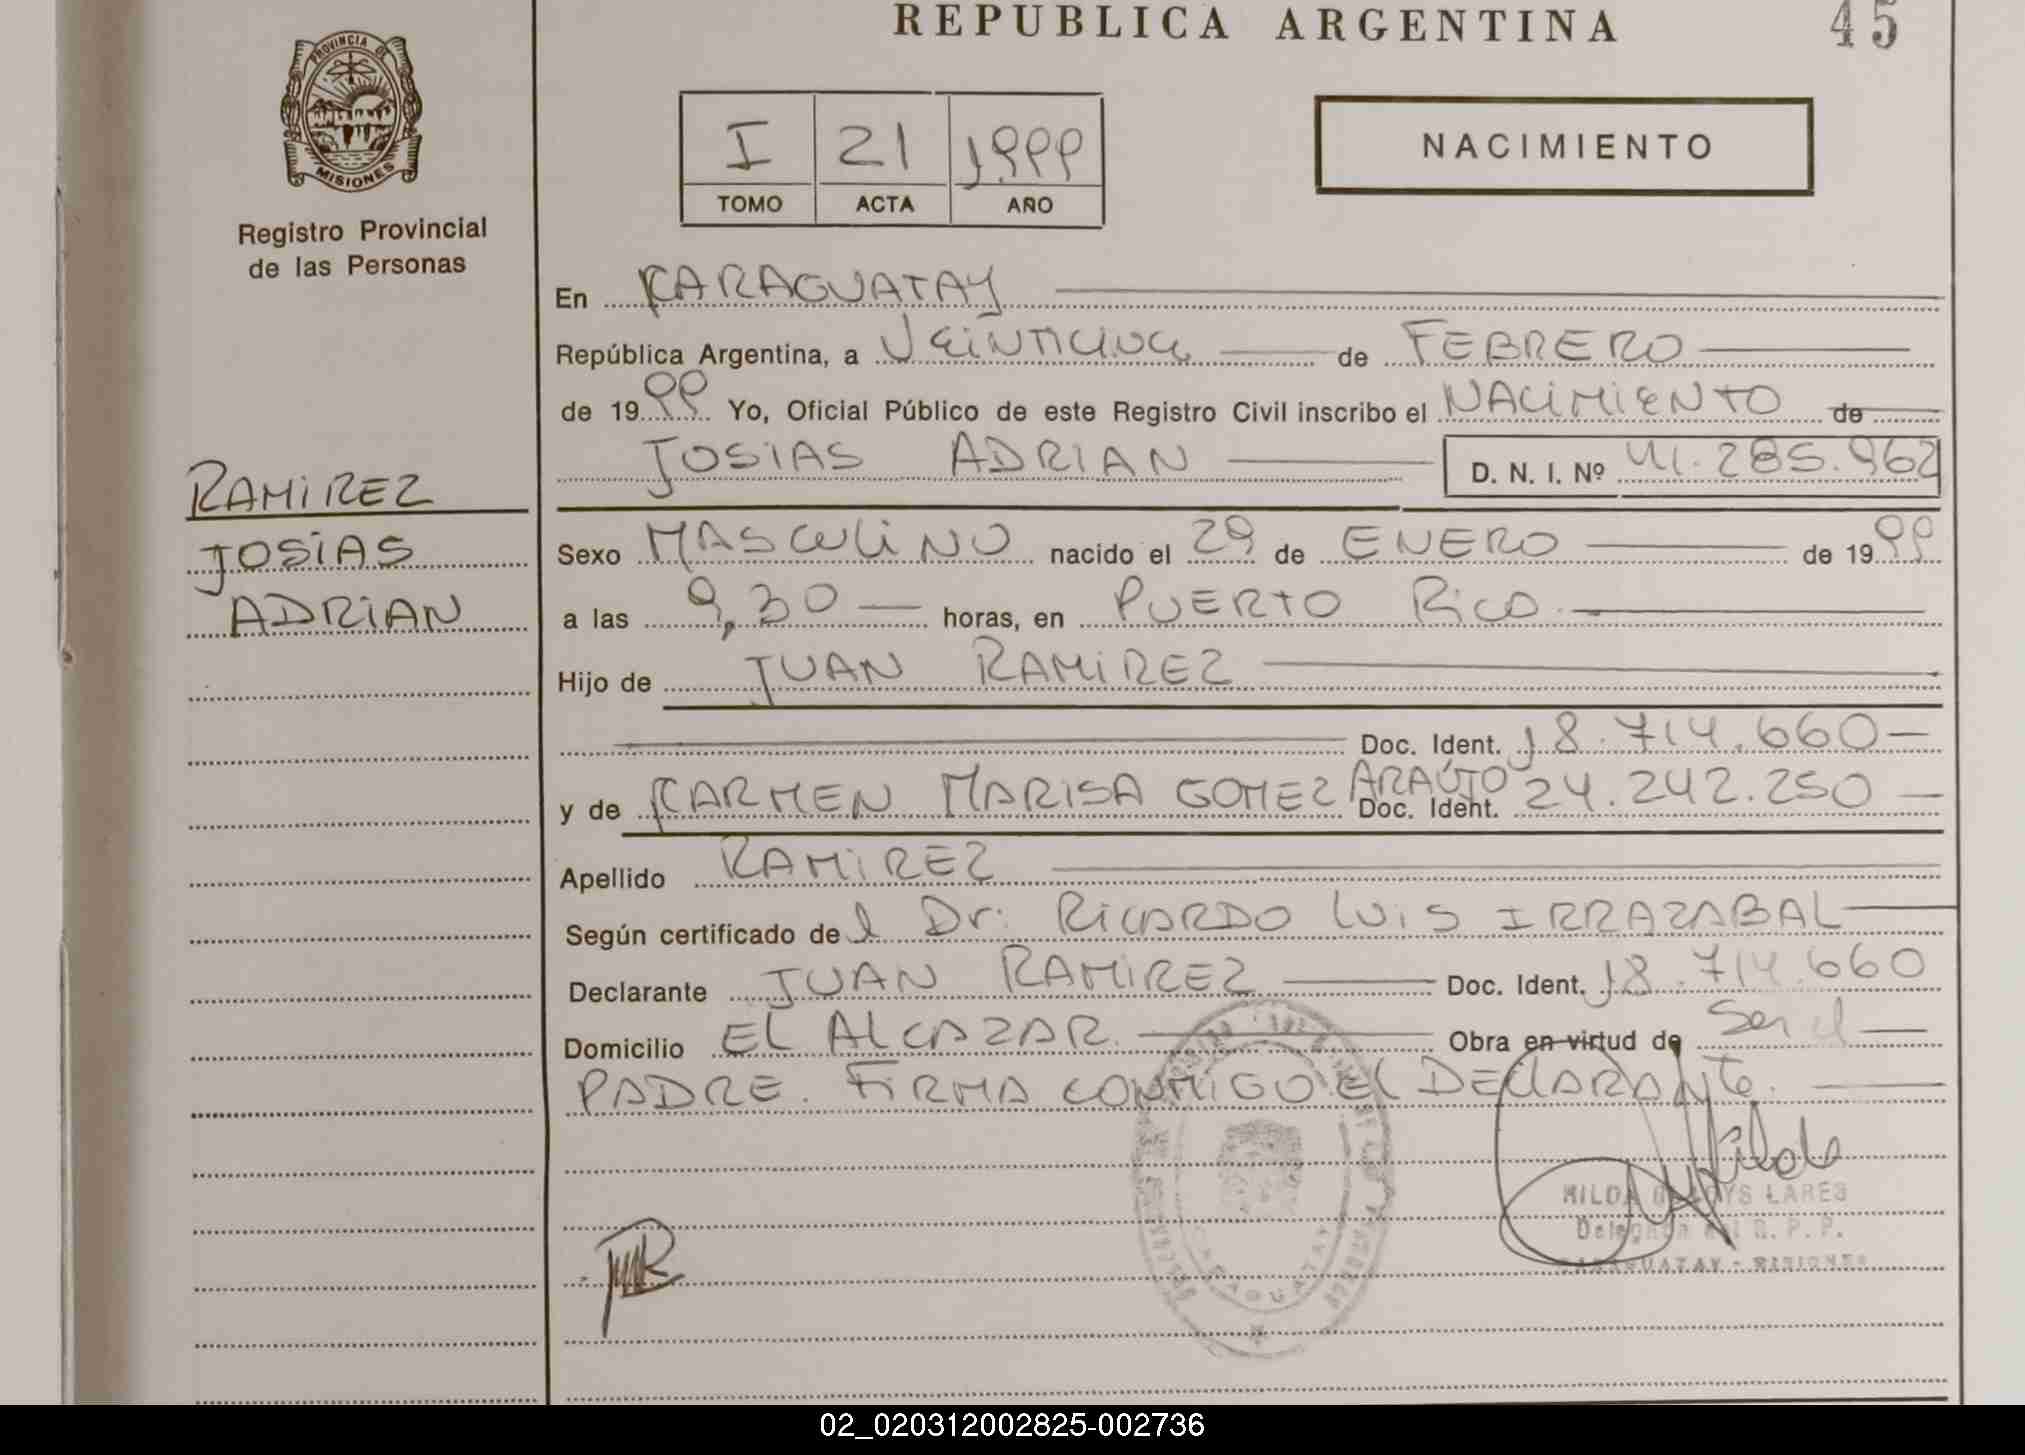 REPUBLICA ARGENTINA
45
PROVINCIA DE
MISIONES
Registro Provincial
de las Personas
I 21 1999
TOMO ACTA AÑO
NACIMIENTO
En CARAGUATAY
República Argentina, a VEINTICINCO de FEBRERO
de 1999 Yo, Oficial Público de este Registro Civil inscribo el NACIMIENTO de
JOSIAS ADRIAN D. N. I. Nº 41.285.962
RAMIREZ
JOSIAS
ADRIAN
Sexo MASCULINO nacido el 29 de ENERO de 1999
a las 9,30 horas, en PUERTO RICO
Hijo de JUAN RAMIREZ
Doc. Ident. 18.714.660
y de CARMEN MARISA GOMEZ ARAÚJO Doc. Ident. 24.242.250
Apellido RAMIREZ
Según certificado del Dr. RICARDO LUIS IRRAZABAL
Declarante JUAN RAMIREZ Doc. Ident. 18.714.660
Domicilio EL ALCAZAR Obra en virtud de Ser el
PADRE. FIRMA CONMIGO EL DECLARANTE.
HILDA GLADYS LARES
Delegada del R. P. P.
CARAGUATAY - MISIONES
CARAGUATAY
02_020312002825-002736